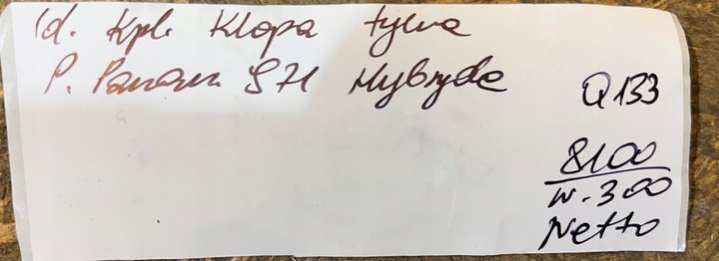 1d. Kpl. Klapa tylna
P. Panam. 971 Hybryda
Q133
8100
W. 300
Netto